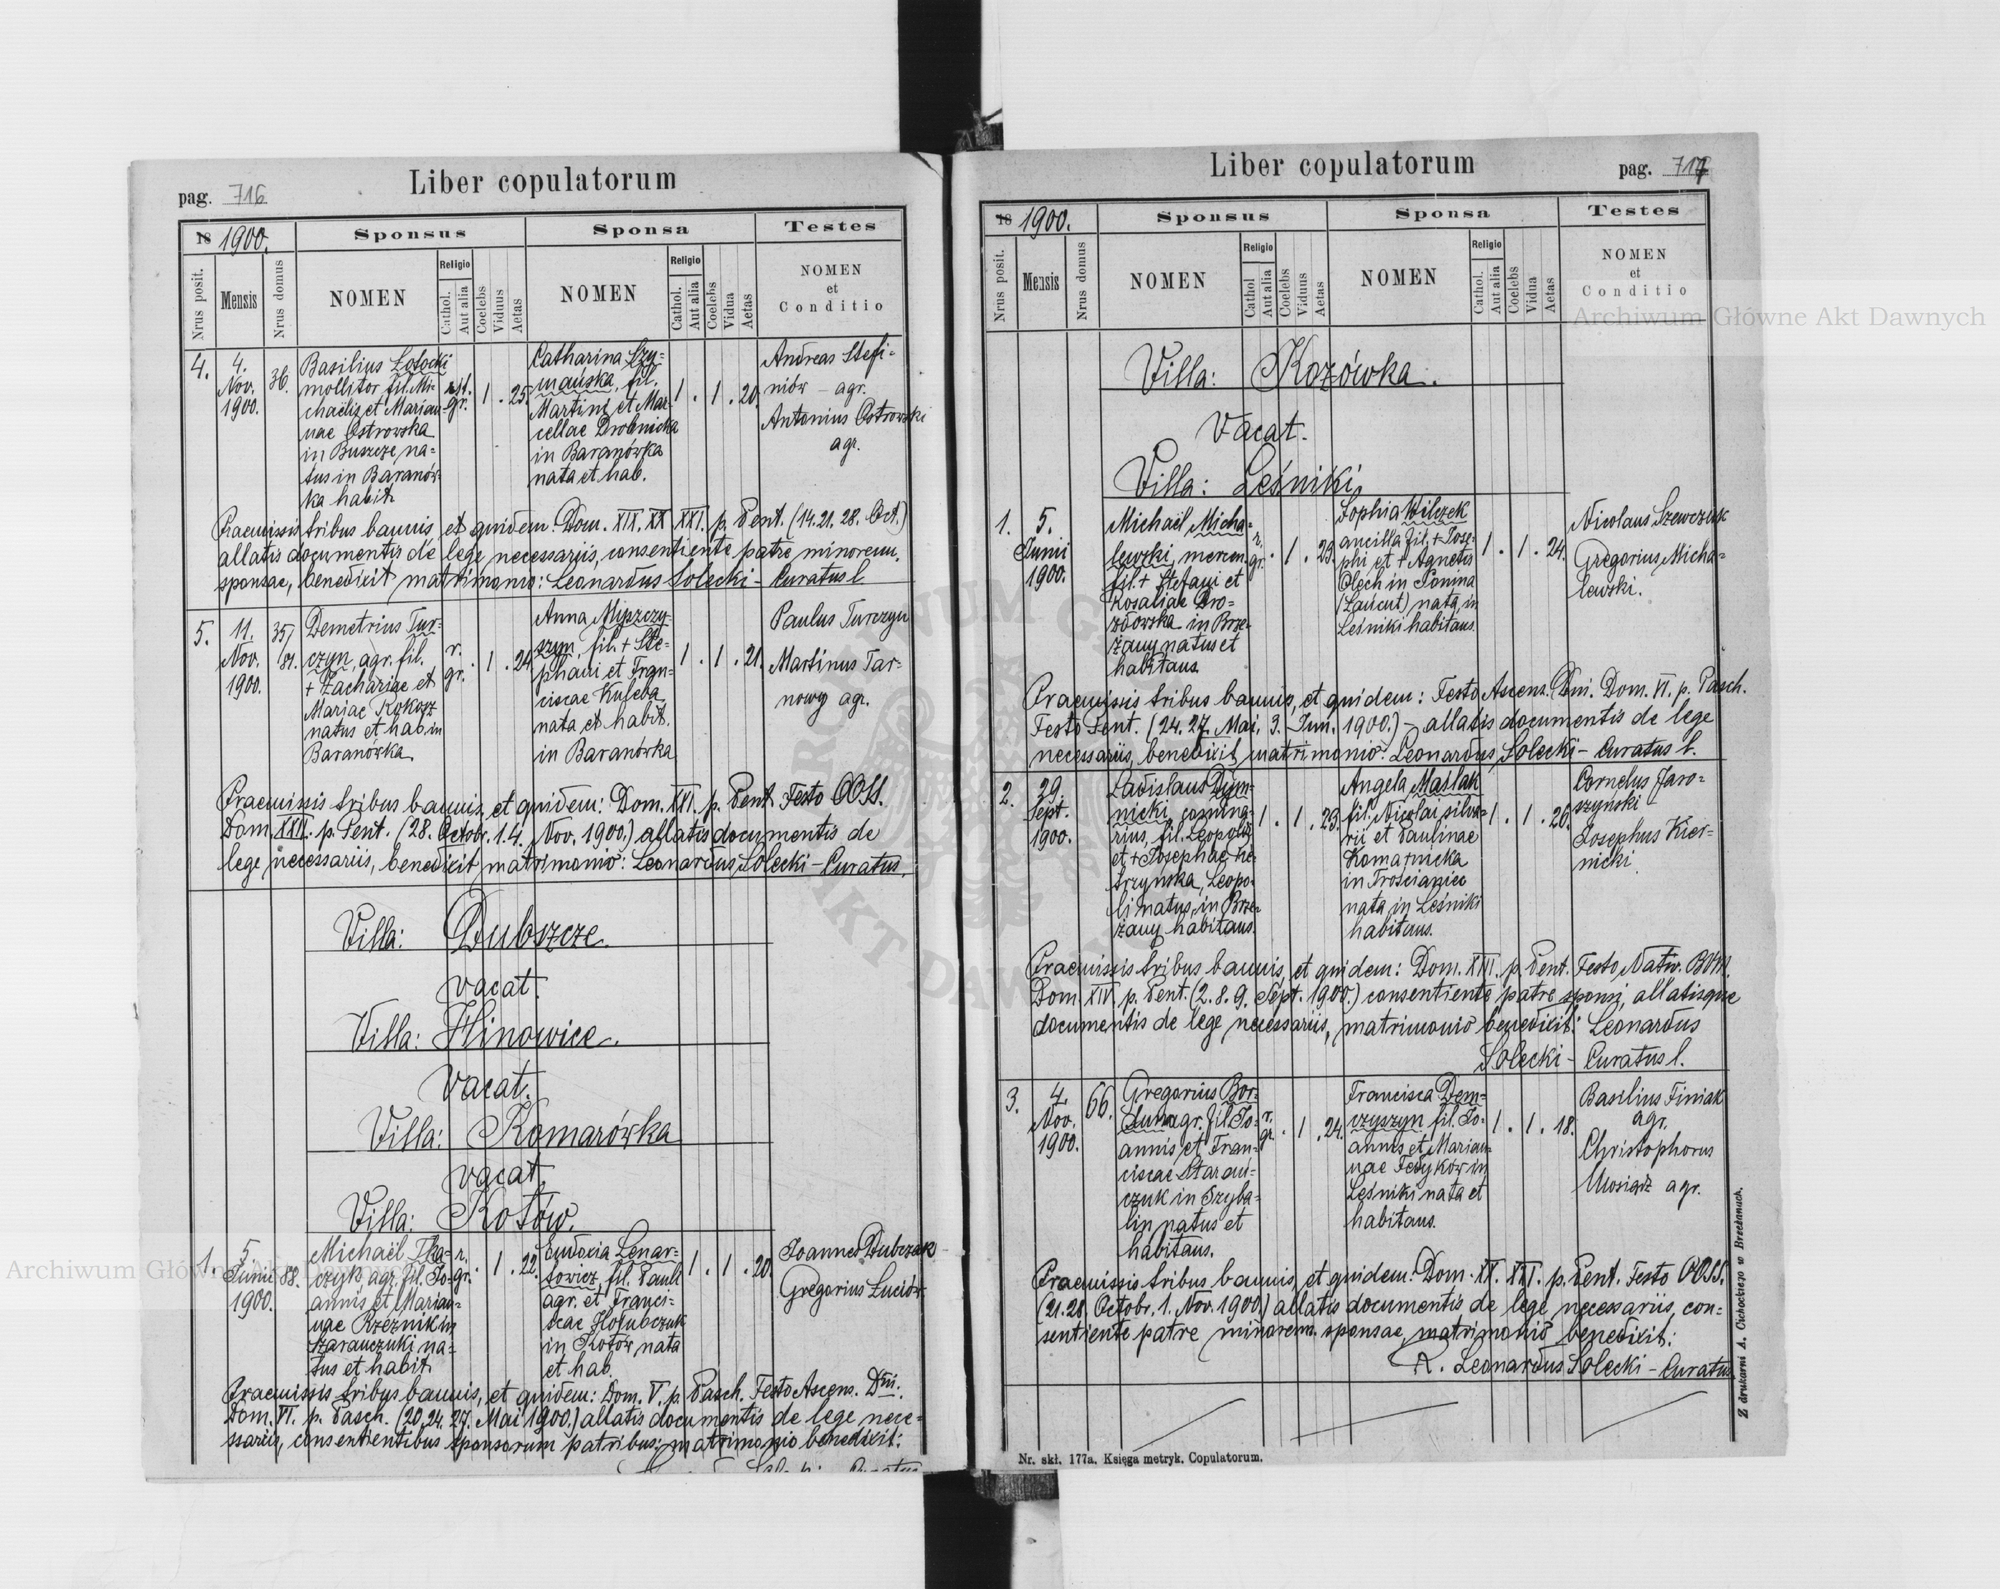 Liber copulatorum
pag. 716
18 1900.
Sponsus
Sponsa
Testes
Nrus posit.
Mensis
Nrus domus
NOMEN
Religio
Cathol.
Aut alia
Coelebs
Viduus
Aetas
NOMEN
Religio
Cathol.
Aut alia
Coelebs
Vidua
Aetas
NOMEN
et
Conditio
4.
4.
Nov.
1900.
36.
Basilius
mollitor fil. Mi-
chaëlis et Marian-
nae Ostrowska
in Buszcze na-
tus in Baranów-
ka habit.
gr.
1 . 25.
Catharina Szy-
mańska, fil.
Martini et Mar-
cellae Drobnicka
in Baranówka
nata et hab.
1 . 1 . 20.
Andreas Stefi-
niów - agr.
Antonius Ostrowski
agr.
Praemissis tribus bannis et quidem: Dom. XIX. XX XXI. p. Pent. (14. 21. 28. Oct.)
allatis documentis de lege necessariis, consentiente patre minorenn.
sponsae, benedixit matrimonio: Leonardus Solecki - Curatus l.
5.
11.
Nov.
1900.
35/
81.
Demetrius Tur-
czyn, agr. fil.
+ Zachariae et
Mariae Kokosz
natus et hab. in
Baranówka.
r.
gr.
. 1 . 24
Anna
fil. + Ste-
phani et Fran-
ciscae Kuleba
nata et habit.
in Baranówka
1 . 1 . 21.
Paulus Turczyn
Martinus Tar-
nowy agr.
Praemissis tribus bannis, et quidem: Dom. XXI. p. Pent. Festo OOSS.
Dom. XXII. p. Pent. (28. Octobr. 1. 4. Nov. 1900.) allatis documentis de
lege necessariis, benedixit matrimonio: Leonardus Solecki - Curatus.
Villa: Dubszcze.
vacat.
Villa: Hinowice.
vacat.
Villa: Komarówka
vacat.
Villa: Kotów.
1.
5.
Junii
1900.
88.
Michaël Tka-
czyk agr. fil. Jo-
annis et Marian-
nae Rzeźnik in
Szaranczuki na-
tus et habit.
r.
gr.
. 1 . 22.
Eudoxia Lenar-
towicz, fil. Pauli
agr. et Franci-
scae Hołubczuk
in Kotów nata
et hab.
1 . 1 . 20.
Joannes Dubczak
Gregorius Luciów
Praemissis tribus bannis, et quidem: Dom. V. p. Pasch. Festo Ascens. Dni.
Dom. VI. p. Pasch. (20. 24. 27. Mai 1900.) allatis documentis de lege nece-
ssariis, consentientibus sponsorum patribus: matrimonio benedixit:
Liber copulatorum
pag. 717
18 1900.
Sponsus
Sponsa
Testes
Nrus posit.
Mensis
Nrus domus
NOMEN
Religio
Cathol
Aut alia
Coelebs
Viduus
Aetas
NOMEN
Religio
Cathol.
Aut alia
Coelebs
Vidua
Aetas
NOMEN
et
Conditio
Villa: Kozówka.
Vacat.
Villa: Leśniki.
1.
5.
Junii
1900.
Michaël Micha-
lewski, mercen.
fil. + Stefani et
Rosaliae Dro-
zdowska in Brze-
żany natus et
habitans.
r.
gr.
. 1 . 23.
Sophia Wilczek
ancilla fil. + Jose-
phi et + Agnetis
Olech in Sonina
(Łańcut) nata, in
Leśniki habitans.
1 . 1 . 24.
Nicolaus Szewczuk
Gregorius Micha-
lewski.
Praemissis tribus bannis, et quidem: Festo Ascens. Dni. Dom. VI. p. Pasch.
Festo Pent. (24. 27. Mai, 3. Jun. 1900.) - allatis documentis de lege
necessariis, benedixit matrimonio: Leonardus Solecki - Curatus l.
2.
29.
Sept.
1900.
Ladislaus Dym-
nicki,
rius, fil. Leopoldi
et + Josephae Kę-
trzyńska, Leopo-
li natus, in Brze-
żany habitans.
1 . 1 . 23.
Angela Maślak
fil. Nicolai silva-
rii et Paulinae
Komarnicka
in Trościaniec
nata in Leśniki
habitans.
1 . 1 . 26.
Cornelus Jaro-
szyński
Josephus Kier-
nicki.
Praemissis tribus bannis, et quidem: Dom. XIII. p. Pent. Festo Nativ. BVM.
Dom. XIV. p. Pent. (2. 8. 9. Sept. 1900.) consentiente patre sponsi, allatisque
documentis de lege necessariis, matrimonio benedixit: Leonardus
Solecki - Curatus l.
3.
4.
Nov.
1900.
66.
Gregorius Bor-
agr. fil. Jo-
annis et Fran-
ciscae Starań-
czuk in Szyba-
lin natus et
habitans.
r.
gr.
. 1 . 24.
Francisca Dem-
czyszyn fil. Jo-
annis et Marian-
nae Fedyków in
Leśniki nata et
habitans.
1 . 1 . 18.
Basilius Finiak
agr.
Christophorus
Mosiądz agr.
Praemissis tribus bannis, et quidem: Dom. XX. XXI. p. Pent. Festo OOSS.
(21. 28. Octobr. 1. Nov. 1900.) allatis documentis de lege necessariis, con-
sentiente patre minorenn. sponsae, matrimonio benedixit:
X. Leonardus Solecki - Curatus
Nr. skł. 177a. Księga metryk. Copulatorum.
Z drukarni A. Cichockiego w Brzeżanach.
Archiwum Główne Akt Dawnych
Archiwum Główne Akt Dawnych
ARCHIWUM GŁÓWNE AKT DAWNYCH